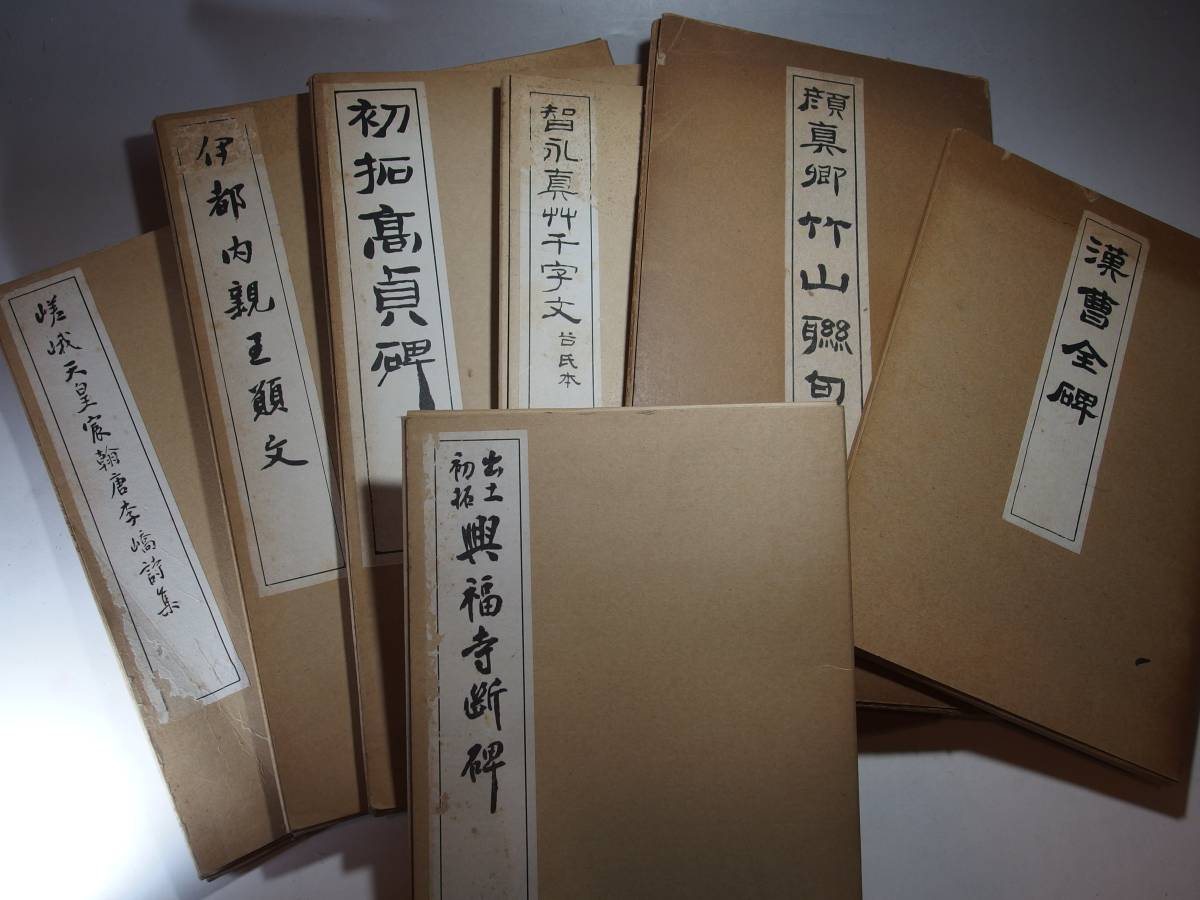 嵯峨天皇宸翰唐李嶠詩集
伊都内親王願文
初拓高貞碑
智永真艸千字文 谷氏本
顔真卿竹山聯句
漢曹全碑
出土
初拓
興福寺断碑